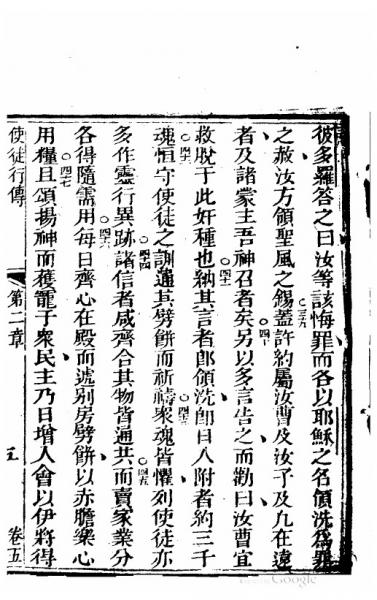 彼多羅答之曰汝等該悔罪而各以耶穌之名領洗爲罪
之赦汝方領聖風之錫○三十九蓋許約屬汝曹及汝子及凡在遠
者及諸蒙主吾神召者矣○四十另以多言告之而勸曰汝曹宜
救脫于此奸種也○四一納其言者即領洗即日八附者約三千
魂○四二恒守使徒之訓通其劈餅而祈禱○四三衆魂皆懼列使徒亦
多作靈行異跡○四四諸信者咸齊合其物皆通共○四五而賣家業分
各得隨需用○四六每日齊心在殿而遞別房劈餅以赤膽樂心
用糧○四七且頌揚神而獲寵于衆民主乃日增人會以伊將得
使徒行傳
第二章
五
卷五
Google